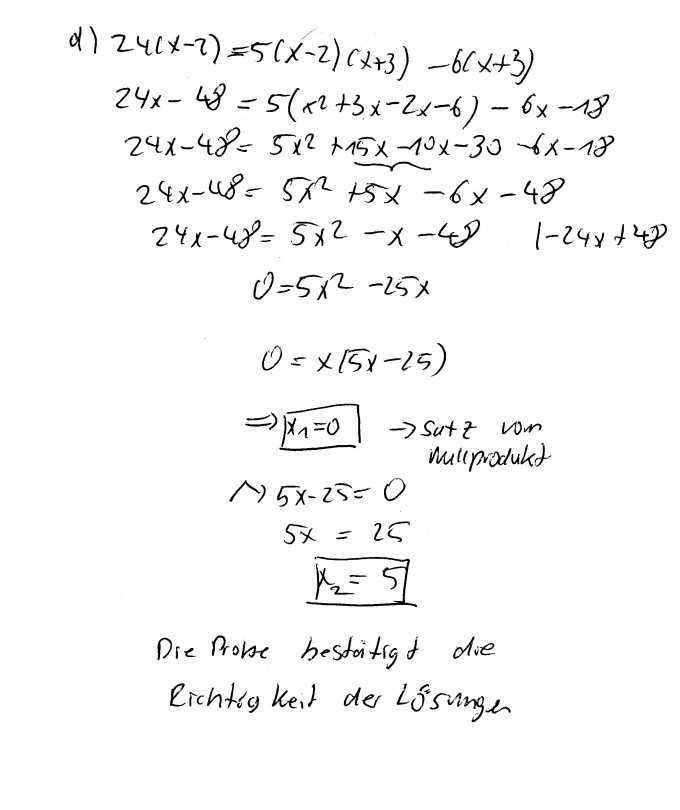 d) 24(x-2) = 5(x-2)(x+3) - 6(x+3)
24x - 48 = 5(x² + 3x - 2x - 6) - 6x - 18
24x - 48 = 5x² + 15x - 10x - 30 - 6x - 18
24x - 48 = 5x² + 5x - 6x - 48
24x - 48 = 5x² - x - 48 | - 24x + 48
0 = 5x² - 25x
0 = x(5x - 25)
⇒ x₁ = 0 → Satz vom
Nullprodukt
5x - 25 = 0
5x = 25
x₂ = 5
Die Probe bestätigt die
Richtigkeit der Lösungen